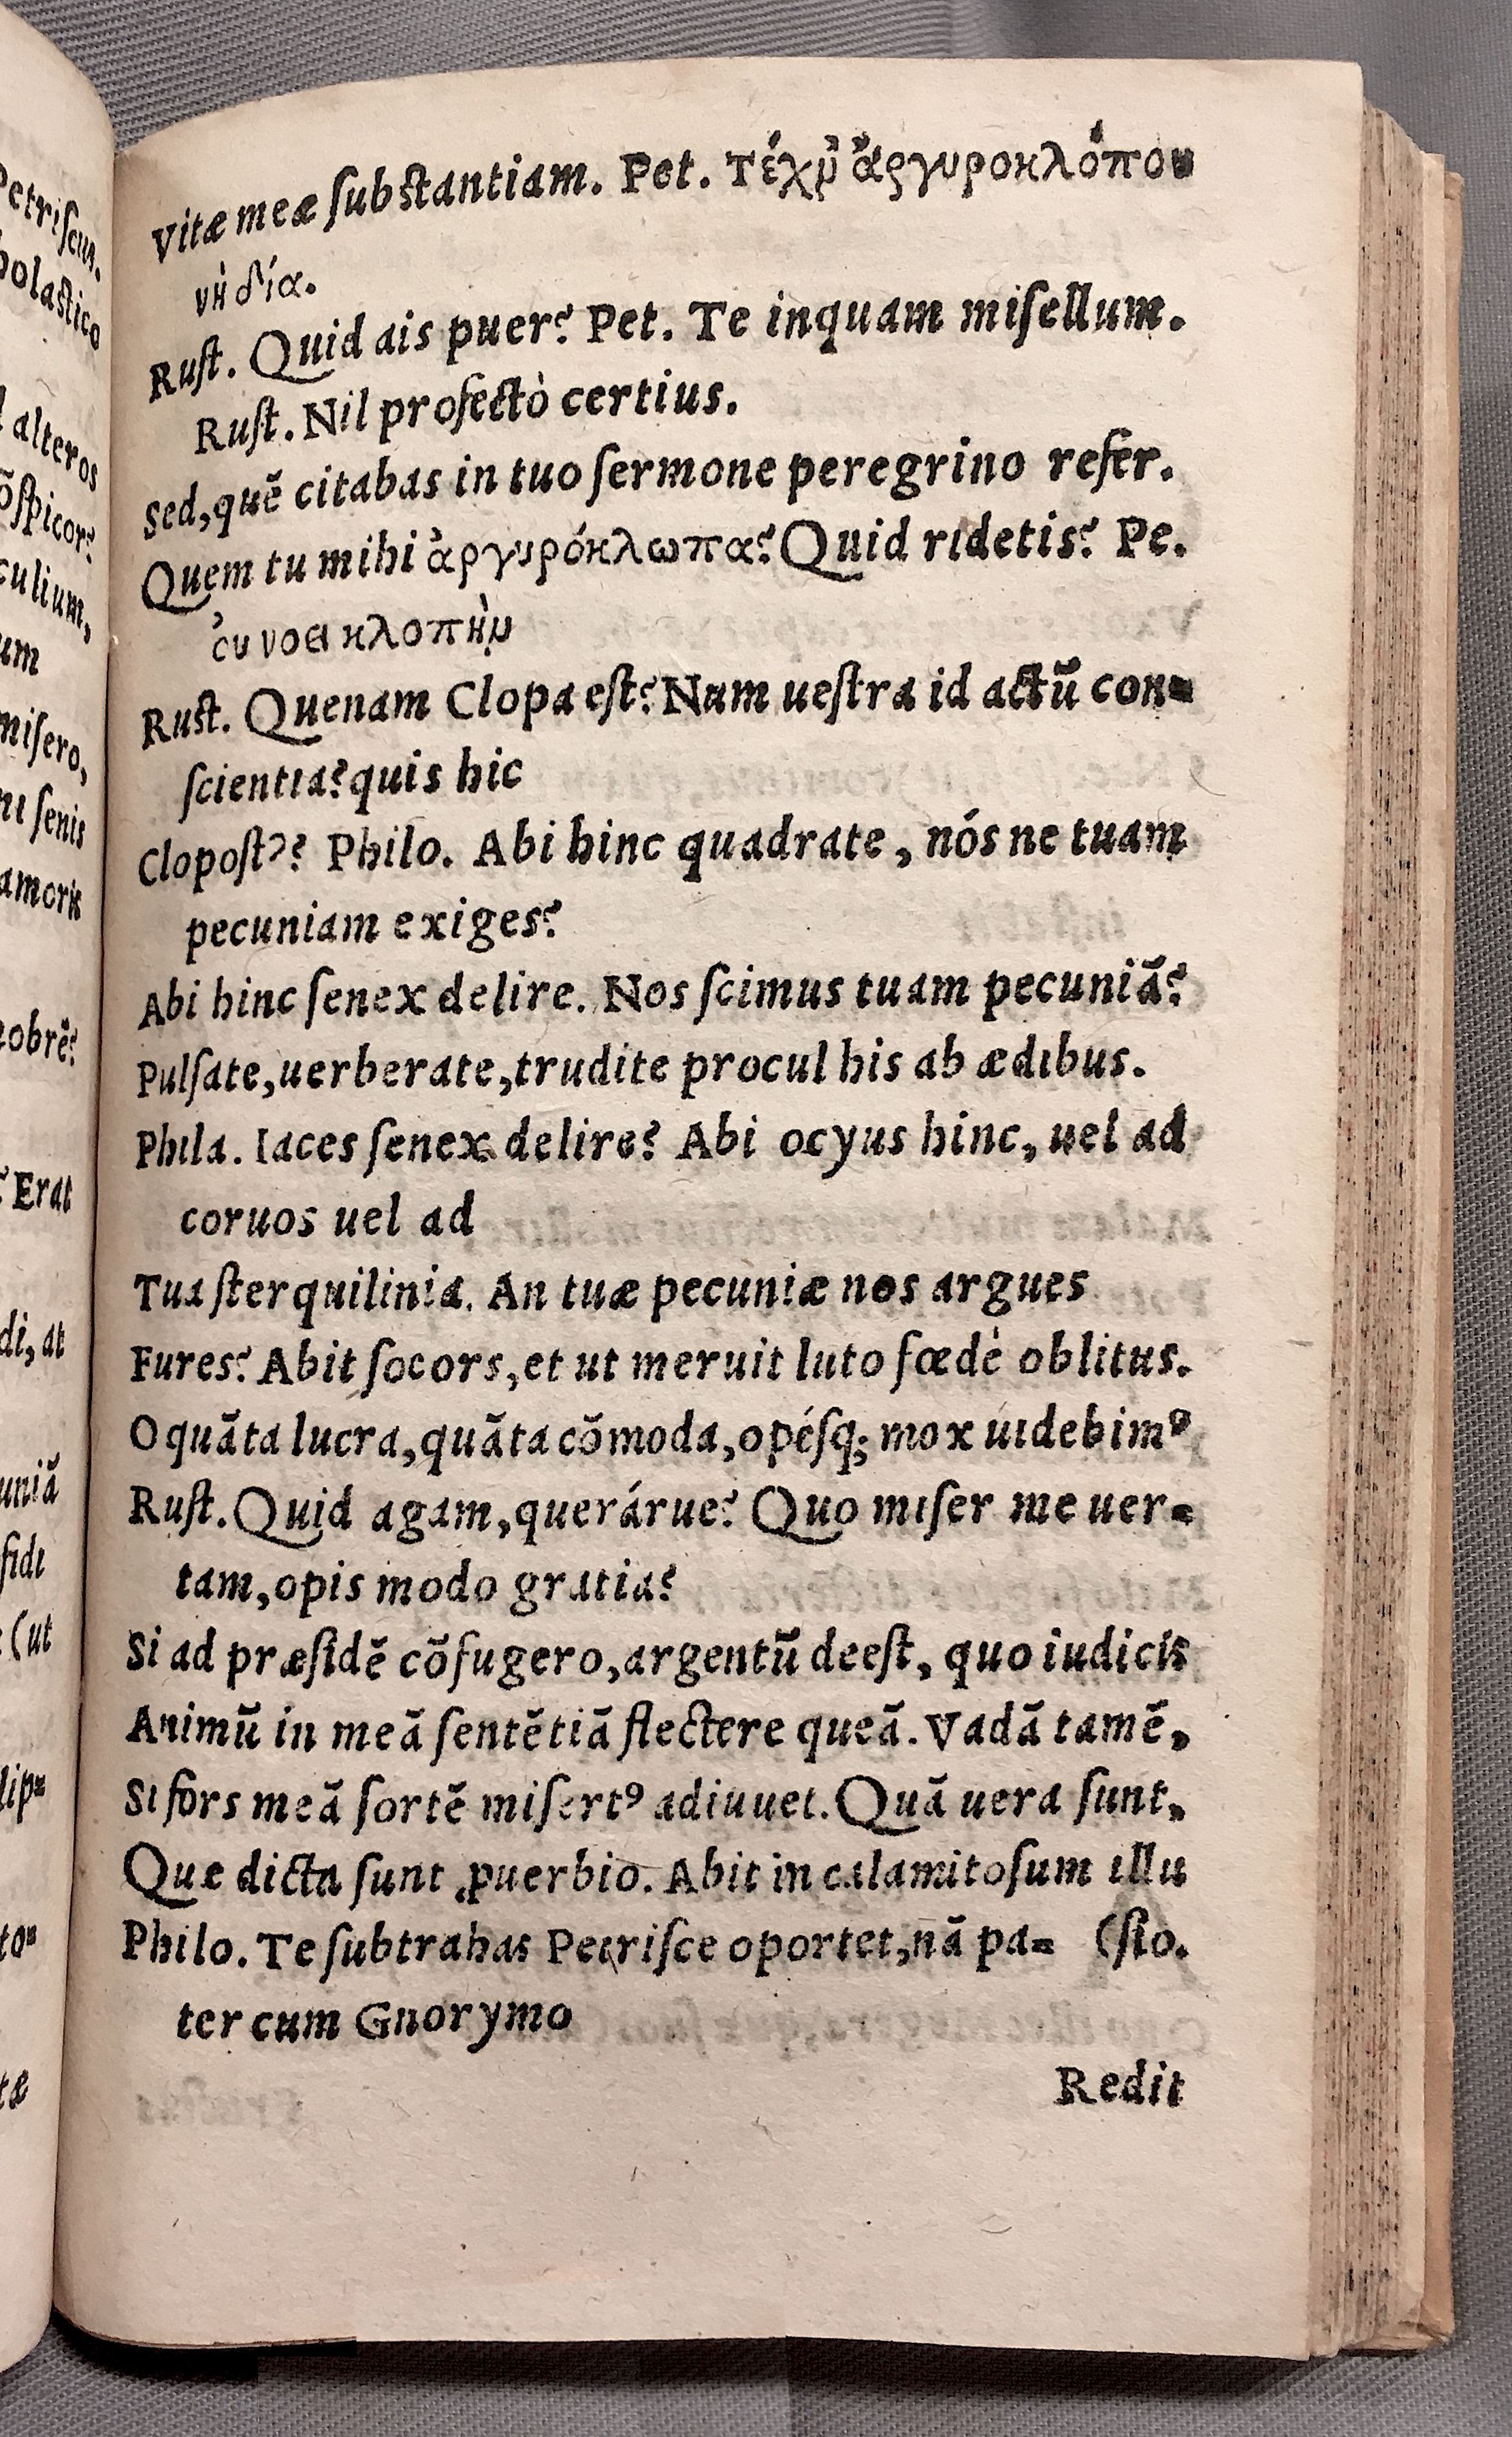 Petriscus.
holastico
alteros
ōspicor?
culium,
um
misero,
ni senis
amoris
robrē?
? Erat
di, at
uniā
fidi
(ut
lip=
to=
tæ
Vitæ meæ substantiam. Pet. Τέχν ἀργυροκλόπου
νὴ δία.
Rust. Quid ais puer? Pet. Te inquam misellum.
Rust. Nil profectò certius.
Sed, quē citabas in tuo sermone peregrino refer.
Quem tu mihi ἀργυρόκλωπα? Quid ridetis? Pe.
συ νοει κλοπὴν
Rust. Quenam Clopa est? Num uestra id actū con=
scientia? quis hic
Clopost⁹? Philo. Abi hinc quadrate, nós ne tuam
pecuniam exiges?
Abi hinc senex delire. Nos scimus tuam pecuniā?
Pulsate, uerberate, trudite procul his ab ædibus.
Phila. Iaces senex delire? Abi ocyus hinc, uel ad
coruos uel ad
Tua sterquilinia. An tuæ pecuniæ nos argues
Fures? Abit socors, et ut meruit luto fœdè oblitus.
O quāta lucra, quāta cōmoda, opésq; mox uidebim⁹
Rust. Quid agam, querárue? Quo miser me uer=
tam, opis modo gratia?
Si ad præsidē cōfugero, argentū deest, quo iudicis
Animū in meā sentētiā flectere queā. Vadā tamē,
Si fors meā sortē misert⁹ adiuuet. Quā uera sunt,
Que dicta sunt ꝓuerbio. Abit in calamitosum illu
Philo. Te subtrahas Petrisce oportet, nā pa= (sto.
ter cum Gnorymo
Redit